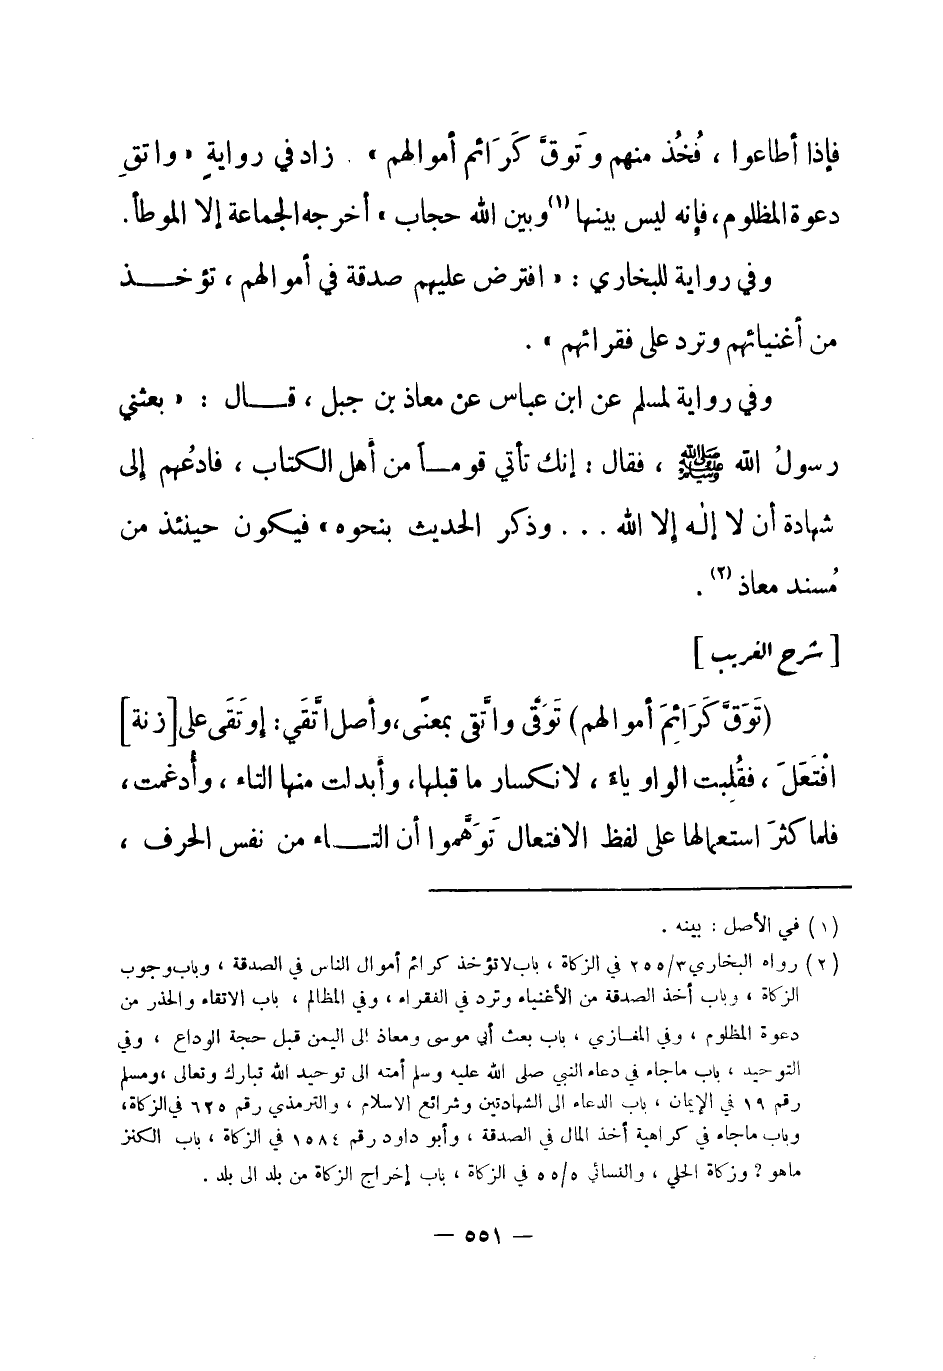 فإذا أطاعوا ، فُخُذ منهم وتَوقَّ كَرَائم أموالهم » . زاد في روايةٍ « واتقِ
دعوة المظلوم، فإنه ليس بينها (١) وبين الله حجاب » أخرجه الجماعة إلا الموطأ.
وفي رواية للبخاري : « افترض عليهم صدقة في أموالهم ، تؤخـــذ
من أغنيائهم وترد على فقرائهم » .
وفي رواية لمسلم عن ابن عباس عن معاذ بن جبل ، قـــال : « بعثني
رسولُ الله ﷺ ، فقال : إنك تأتي قومـاً من أهل الكتاب ، فادعُهم إلى
شهادة أن لا إلٰه إلا الله . . . وذكر الحديث بنحوه » فيكون حينئذ من
مُسند معاذ (٢) .
[ شرح الغريب ]
(تَوَقَّ كَرَائِمَ أموالهم) تَوَقَّى واتَّقى بمعنًى، وأصل اتَّقَي : إوتَقَى على [زنة]
افْتَعَلَ ، فقُلِبت الواو ياءً ، لانكسار ما قبلها، وأبدلت منها التاء ، وأُدغمت،
فلما كثرَ استعمالها على لفظ الافتعال تَوَهَّموا أن التـــاء من نفس الحرف ،
(١) في الأصل : بينه .
(٢) رواه البخاري ٢٥٥/٣ في الزكاة ، باب لا تؤخذ كرائم أموال الناس في الصدقة ، وباب وجوب
الزكاة ، وباب أخذ الصدقة من الأغنياء وترد في الفقراء ، وفي المظالم ، باب الاتقاء والحذر من
دعوة المظلوم ، وفي المغـازي ، باب بعث أبي موسى ومعاذ إلى اليمن قبل حجة الوداع ، وفي
التوحيد ، باب ماجاء في دعاء النبي صلى الله عليه وسلم أمته الى توحيد الله تبارك وتعالى ،ومسلم
رقم ١٩ في الإيمان ، باب الدعاء الى الشهادتين وشرائع الاسلام ، والترمذي رقم ٦٢٥ في الزكاة،
وباب ماجاء في كراهية أخذ المال في الصدقة ، وأبو داود رقم ١٥٨٤ في الزكاة ، باب الكنز
ماهو ? وزكاة الحلي ، والنسائي ٥٥/٥ في الزكاة ، باب إخراج الزكاة من بلد الى بلد .
— ٥٥١ —